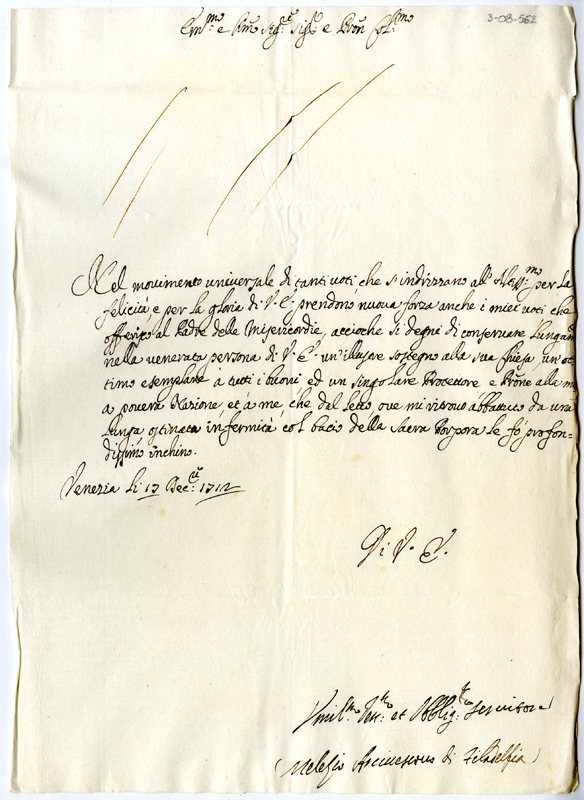 3-08-562
Em.mo e Rmo Sig.r Sig.r e Pron Col.mo
Nel movimento universale di tanti voti che s'indirizzano all' Altiss.mo per la
felicità e per la gloria di V. E. prendono nuova forza anche i miei voti che
offerisco al Padre delle Misericordie, accioche si degni di conservare lungam
nella venerata persona di V. E. un'illustre sostegno alla sua Chiesa, un'ot
timo esemplare à tutti i buoni ed un singolare Protettore e Prone alla mi
a povera Nazione, et à me, che dal letto ove mi ritrovo abbattuto da una
lunga ostinata infermità col bacio della Sacra Porpora le fò profon-
dissimo inchino.
Venezia li 17 Dec. 1712
Di V. E.
Umil.mo Dev.mo et Obblig.mo Servitore
(Meletio Arcivescovo di Filadelfia)